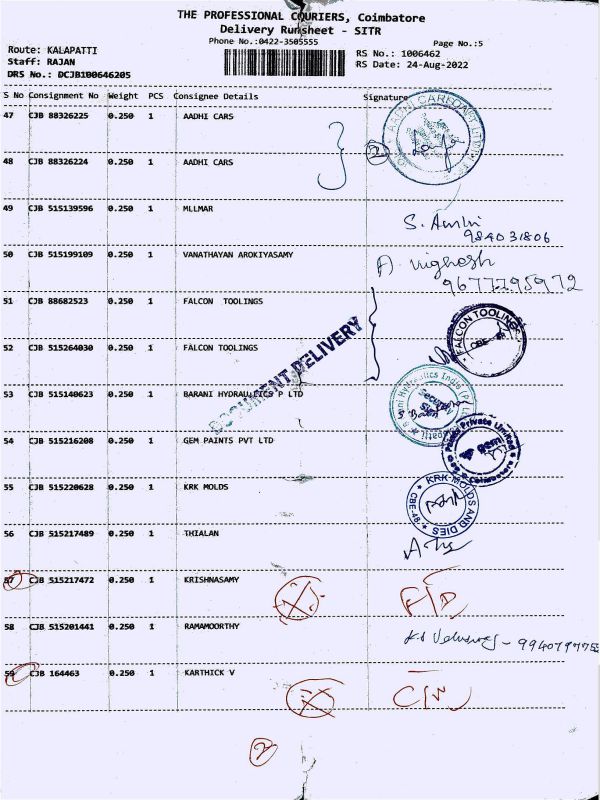 THE PROFESSIONAL COURIERS, Coimbatore
Delivery Runsheet - SITR
Phone No.:0422-3505555
Page No.:5
Route: KALAPATTI
RS No.: 1006462
Staff: RAJAN
RS Date: 24-Aug-2022
DRS No.: DCJB100646205
S No Consignment No Weight PCS Consignee Details Signature
47 CJB 88326225 0.250 1 AADHI CARS
2
48 CJB 88326224 0.250 1 AADHI CARS
49 CJB 515139596 0.250 1 MLLMAR
984031806
50 CJB 515199109 0.250 1 VANATHAYAN AROKIYASAMY
A. Vighesh
9677795972
51 CJB 88682523 0.250 1 FALCON TOOLINGS
FALCON TOOLINGS
CBE
52 CJB 515264030 0.250 1 FALCON TOOLINGS
DOCUMENT DELIVERY
53 CJB 515140623 0.250 1 BARANI HYDRAULICS P LTD
Barani Hydraulics India (P) Ltd
Security
54 CJB 515216208 0.250 1 GEM PAINTS PVT LTD
Paints Private Limited
gem
Coimbatore
55 CJB 515220628 0.250 1 KRK MOLDS
KRK-MOLDS AND DIES
CBE-48
56 CJB 515217489 0.250 1 THIALAN
57 CJB 515217472 0.250 1 KRISHNASAMY
58 CJB 515201441 0.250 1 RAMAMOORTHY
59 CJB 164463 0.250 1 KARTHICK V
2